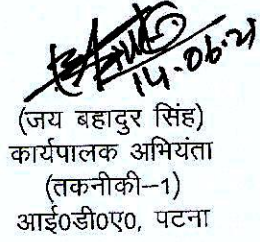 14.06.21
(जय बहादुर सिंह)
कार्यपालक अभियंता
(तकनीकी-1)
आई0डी0ए0, पटना